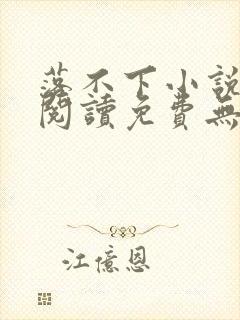 落不下小說
閱讀免費無
江億恩